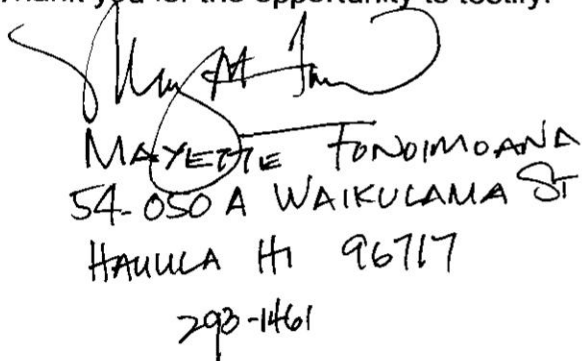 Thank you for the opportunity to testify.
MAYETTE FONOIMOANA
54-050 A WAIKULAMA ST
HAUULA HI 96717
293-1461